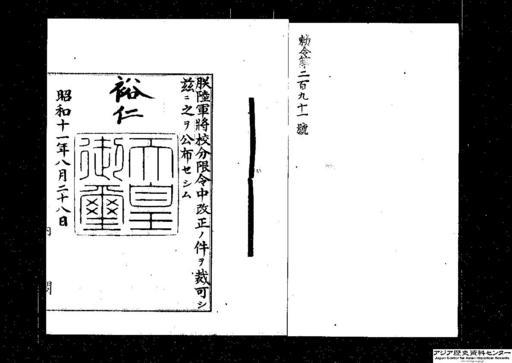 勅令第二百九十一號
朕陸軍將校分限令中改正ノ件ヲ裁可シ
茲ニ之ヲ公布セシム
裕仁
天皇
御璽
昭和十一年八月二十八日
アジア歴史資料センター
Japan Center for Asian Historical Records